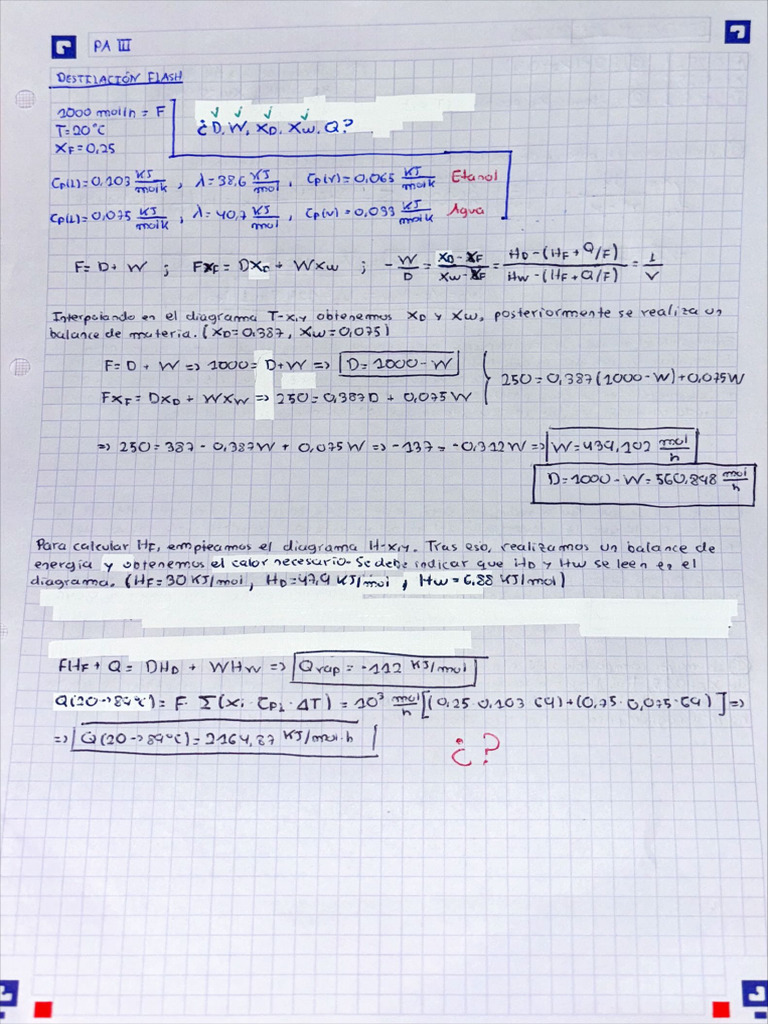 PA III
DESTILACIÓN FLASH
1000 mol/h = F
T=20°C
XF=0,25
¿D, W, XD, XW, Q?
Cp(L)=0,103 KJ/molK , λ=38,6 KJ/mol , Cp(V)=0,065 KJ/molK Etanol
Cp(L)=0,075 KJ/molK , λ=40,7 KJ/mol , Cp(V)=0,033 KJ/molK Agua
F=D+W ; FXF=DXD+WXW ; -W/D = (XD-XF)/(XW-XF) = (HD-(HF+Q/F))/(HW-(HF+Q/F)) = 1/V
Interpolando en el diagrama T-x,y obtenemos XD y XW, posteriormente se realiza un
balance de materia. (XD=0,387, XW=0,075)
F=D+W => 1000=D+W => D=1000-W
FXF=DXD+WXW => 250=0,387D+0,075W
250=0,387(1000-W)+0,075W
=> 250=387-0,387W+0,075W => -137=-0,312W => W=439,102 mol/h
D=1000-W=560,898 mol/h
Para calcular HF, empleamos el diagrama H-x,y. Tras eso, realizamos un balance de
energía y obtenemos el calor necesario. Se debe indicar que HD y HW se leen en el
diagrama. (HF=30 KJ/mol, HD=47,9 KJ/mol, HW=6,88 KJ/mol)
FHF+Q=DHD+WHW => Qvap=-112 KJ/mol
Q(20->89°C)=F·Σ(Xi·Cpi·ΔT)=10³ mol/h [(0,25·0,103·69)+(0,75·0,075·69)] =>
=> Q(20->89°C)=2164,87 KJ/mol·h
¿?